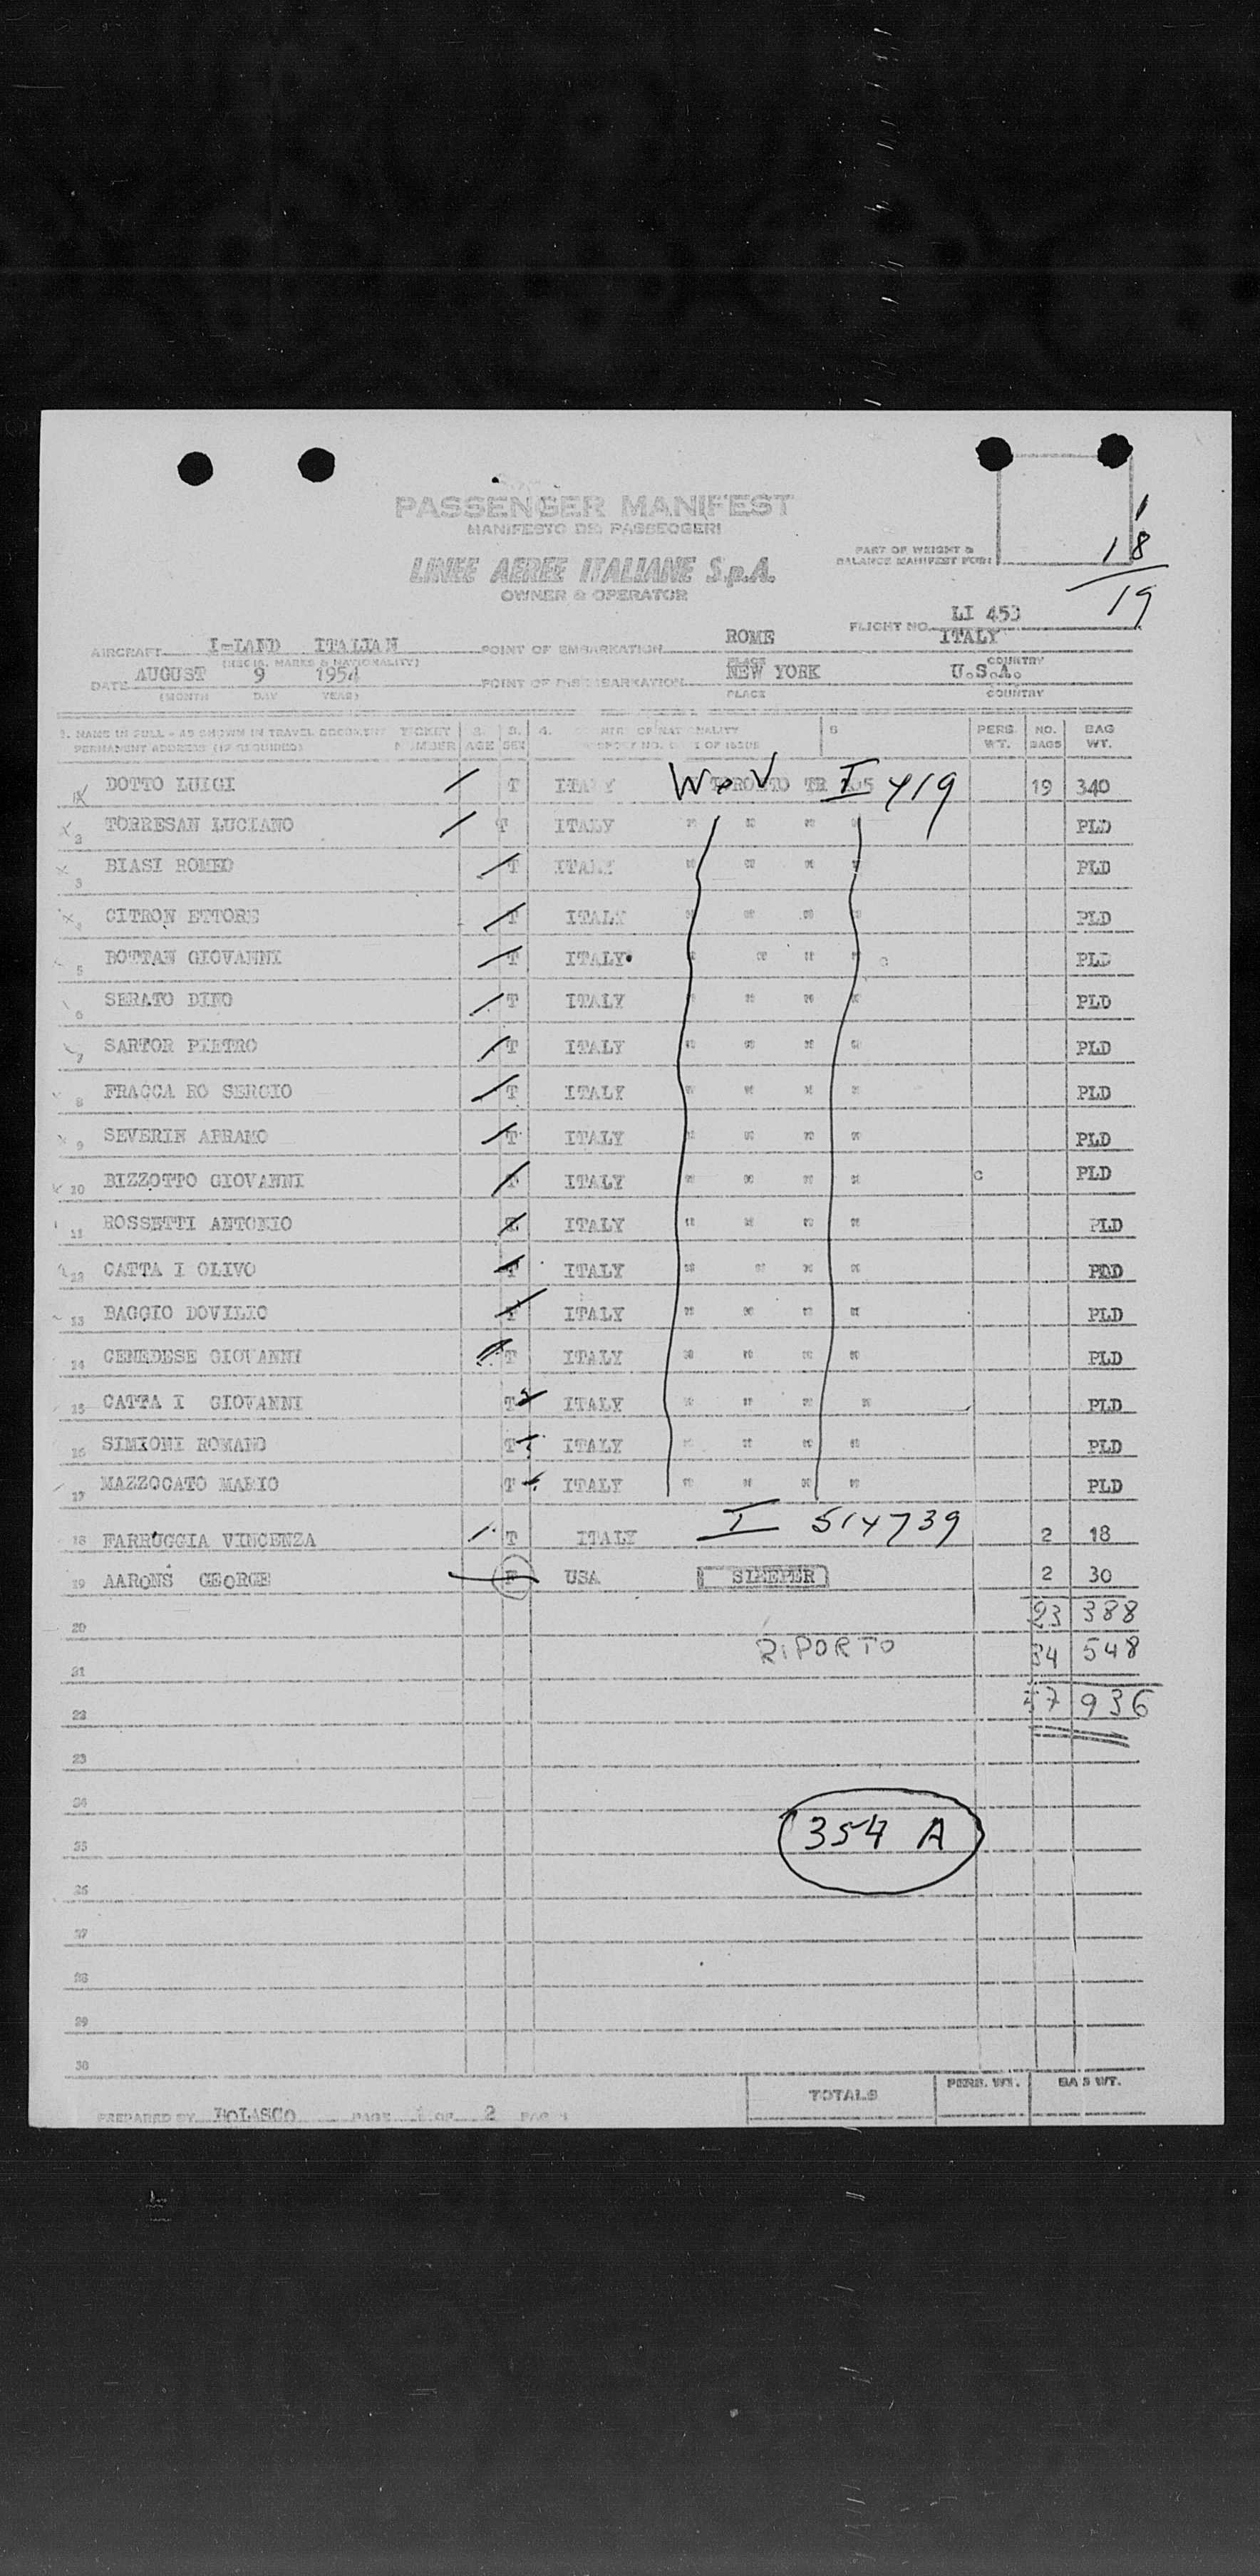 PASSENGER MANIFEST
MANIFESTO DEI PASSEGGERI
LINEE AEREE ITALIANE S.p.A.
OWNER & OPERATOR
PART OF WEIGHT &
BALANCE MANIFEST FOR:
1
18
19
AIRCRAFT I-LAND ITALIAN POINT OF EMBARKATION ROME FLIGHT NO. LI 453 ITALY
(REGIS. MARKS & NATIONALITY) PLACE COUNTRY
DATE AUGUST 9 1954 POINT OF DISEMBARKATION NEW YORK U.S.A.
(MONTH DAY YEAR) PLACE COUNTRY
1. NAME IN FULL - AS SHOWN IN TRAVEL DOCUMENT TICKET 2. 3. 4. OF NATIONALITY 6 PERS. NO. BAG
PERMANENT ADDRESS (IF REQUIRED) NUMBER AGE SEX NO. OF ISSUE WT. BAGS WT.
1 DOTTO LUIGI T ITALY W o V TORONTO TR I 419 19 340
2 TORRESAN LUCIANO T ITALY " " " " PLD
3 BIASI ROMEO T ITALY " " " " PLD
4 CITRON ETTORE T ITALY " " " " PLD
5 BOTTAN GIOVANNI T ITALY " " " " PLD
6 SERATO DINO T ITALY " " " " PLD
7 SARTOR PIETRO T ITALY " " " " PLD
8 FRACCA RO SERGIO T ITALY " " " " PLD
9 SEVERIN ABRAMO T ITALY " " " " PLD
10 BIZZOTTO GIOVANNI T ITALY " " " " C PLD
11 ROSSETTI ANTONIO T ITALY " " " " PLD
12 CATTA I OLIVO T ITALY " " " " PDD
13 BAGGIO DOVILIO T ITALY " " " " PLD
14 CENEDESE GIOVANNI T ITALY " " " " PLD
15 CATTA I GIOVANNI T ITALY " " " " PLD
16 SIMIONI ROMANO T ITALY " " " " PLD
17 MAZZOCATO MARIO T ITALY " " " " PLD
18 FARRUGGIA VINCENZA T ITALY I 514739 2 18
19 AARONS GEORGE F USA SLEEPER 2 30
23 388
20
RIPORTO 34 548
21
57 936
22
23
24
354 A
25
26
27
28
29
30
TOTALS PERS. WT. BAG WT.
PREPARED BY BOLASCO PAGE OF 2 PAGES